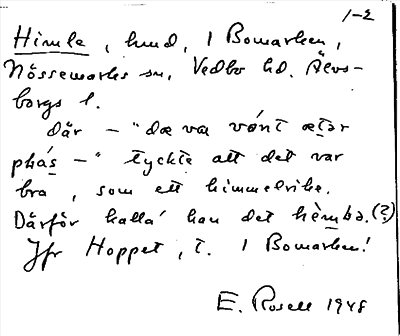 1-2
Himle, lund, i Bomarken,
Nössemarks sn, Vedbo hd. Älvs-
borgs l.
där – "dæ va vónt ætər
phás –" tyckte att det var
bra, som ett himmelrike.
Därför kalla' han det hèmbə.(?)
Jfr Hoppet, t. i Bomarken!
E. Rosell 1948